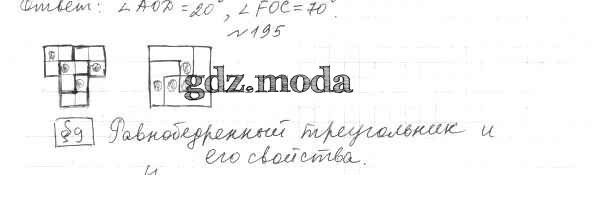 Ответ: ∠AOD = 20°, ∠FOC = 70°.
№195
gdz.moda
§9 Равнобедренный треугольник и
его свойства.